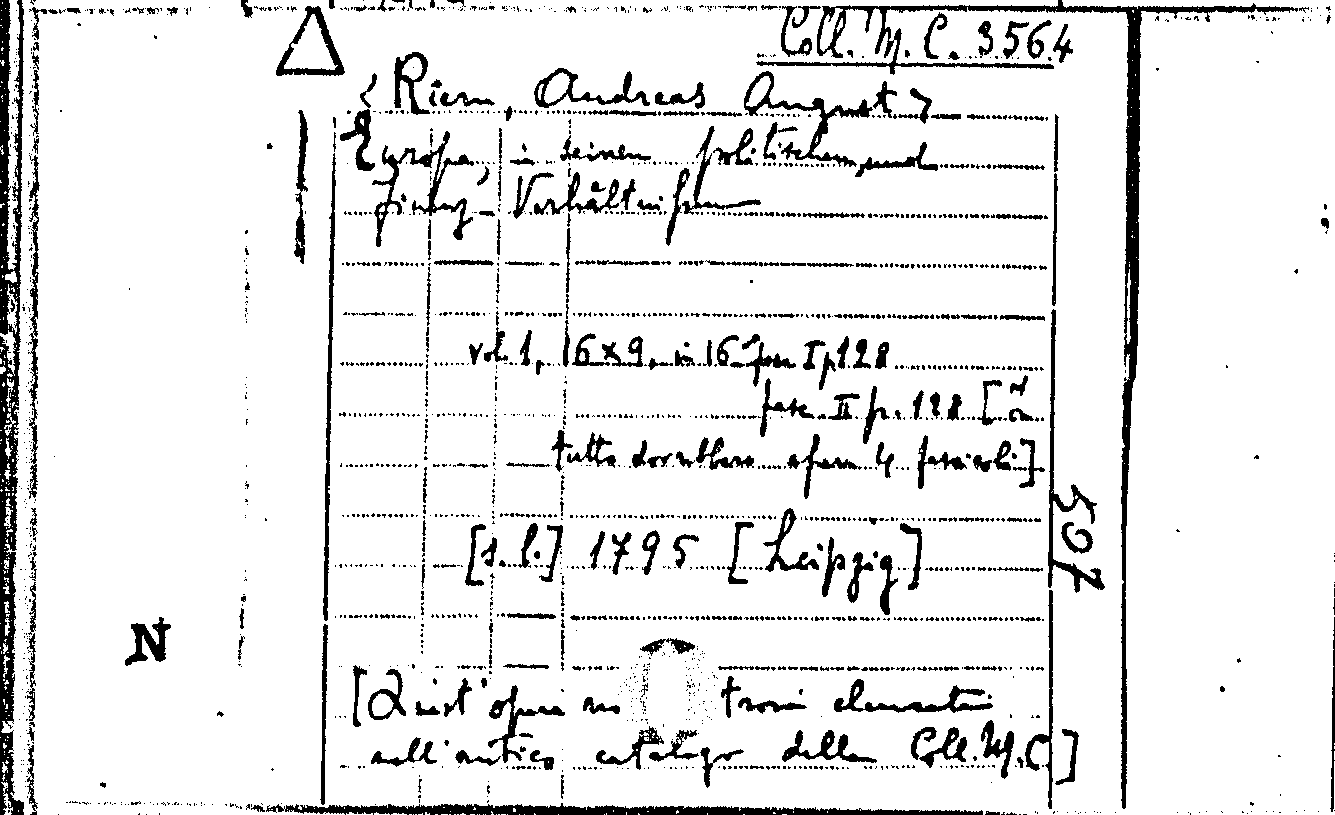 Coll. M. C. 3564
<Riem, Andreas August>
Europa, in seinen politischen und
Finanz- Verhältnissen
vol. 1, 16×9, in 16° fasc I p. 128
fasc. II p. 128 [in
tutto dovrebbero essere 4 fascicoli]
507
[s. l.] 1795 [Leipzig]
N
[Quest'opera no trovi elencata
nell'antico catalogo della Coll. M. C.]